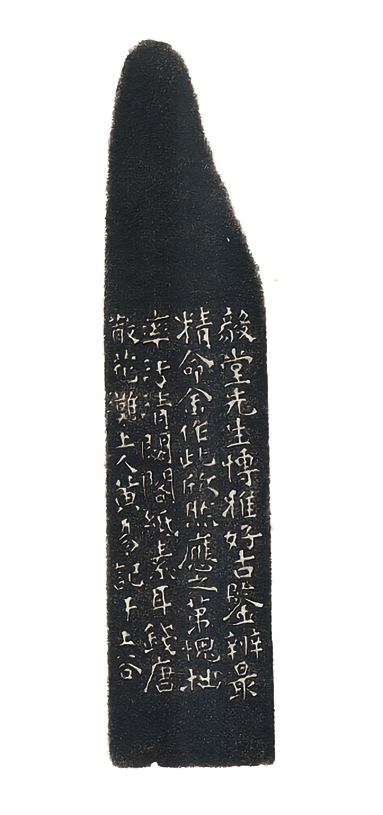 毅堂先生博雅好古鑒辨最
精命余作此欣然應之第愧拙
率污清閟閣紙素耳錢唐
散花灘上人黃易記于上谷